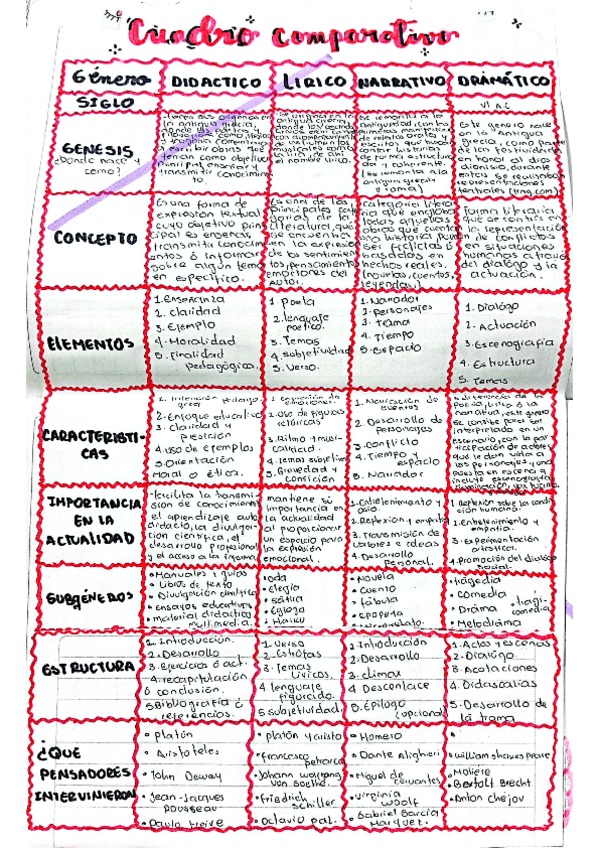 Cuadro comparativo
Género
DIDACTICO
LÍRICO
NARRATIVO
DRÁMÁTICO
SIGLO
VI A.C
GENESIS
¿Donde nace y
como?
la antigua grecia,
tenian como objetivo
transmitir conocimien
to.
el nombre lirico.
antiguedad, con las
de forma estructura
da y coherente.
(se remonta a la
antigua grecia
y roma)
Este genero nace
en la Antigua
Grecia, como parte
de las festividades
en honor al dios
dionisio, durante
representaciones
teatrales
CONCEPTO
Es una forma de
expresion textual
cuyo objetivo prin
cipal es enseñar,
transmitir conocim
entos ó informar
sobre algun tema
en especifico.
Es una de las
principales cate
gorias de la
literatura, que
se encuentra
en la expresión
de los sentimien
tos, pensamientos
emociones del
autor.
Categoria litera
ria que engloba
todas aquellas
obras que cuentan
una historia, pue
ser ficticias
basadas en
hechos reales.
(novelas, cuentos,
leyendas.)
forma literaria
que consiste en
la representación
de conflictos
en situaciones
humanas a través
del dialogo y la
actuación.
ELEMENTOS
1. Enseñanza
2. Claridad
3. Ejemplo
4. Moralidad
5. Finalidad
pedagógica.
1. Poeta
2. lenguaje
poetico.
3. Temas
4. subjetividad
5. Verso.
1. Narrador
2. personajes
3. Trama
4. Tiempo
5. Espacio
1. Dialogo
2. Actuación
3. Escenografía
4. Estructura
5. Temas
CARACTERISTI-
CAS
2. Enfoque educativo
3. Claridad y
precisión
4. uso de ejemplos
5. Orientación
moral o ética.
2. Uso de figuras
retóricas
3. Ritmo y musi-
calidad.
4. Temas subjetivos
5. Brevedad y
1. Narración de
eventos
2. Desarrollo de
personajes
3. conflicto
4. Tiempo y
espacio
5. Narrador
poesia, lirica ó la
narrativa, este genero
se concibe para ser
interpretado en un
escenario, con la par
ticipación de actores
que le dan vida a
los personajes, y una
puesta en escena q
incluye escenografía
IMPORTANCIA
EN LA
ACTUALIDAD
-facilita la transmi-
sion de conocimientos
el aprendizaje auto
didacto, la divulga-
cion cientifica, el
desarrollo profesional
y el acceso a la
mantiene su
importancia en
la actualidad
al proporcionar
un espacio para
la expresión
emocional.
1. Entretenimiento y
ocio.
2. Reflexion y empatia
3. Transmisión de
valores e ideas
4. Desarrollo
Personal.
1. Reflexion sobre la condi
cion humana.
2. Entretenimiento y
empatia.
3. experimentación
artistica.
4. Promoción del dialogo
social.
SUBGÉNEROS
• Manuales y guias
• Libros de texto
• Divulgacion cientifica
• ensayos educativos
• material didactico
multimedia.
• oda
• elegia
• satira
• Egloga
• Haiku
• Novela
• Cuento
• fábula
• epopeya
• tragedia
• comedia
• Drama
• tragi-
comedia
• Melodrama
ESTRUCTURA
1. Introducción.
2. Desarollo
3. Ejercicios ó act.
4. recapitulación
ó conclusión.
5. Bibliografia ó
referencias.
1. Verso
2. Estrofas
3. Temas
liricos.
4. lenguaje
figurado.
5. subjetividad.
1. Introducción
2. Desarrollo
3. climax
4. Descenlace
5. Epilogo
(opcional)
1. Actos y escenas
2. Dialogo
3. Acotaciones
4. Didascalias
5. Desarrollo de
la trama
¿QUE
PENSADORES
INTERVINIERON
• platón
• Aristoteles
• John Dewey
• Jean-Jacques
rousseau
• Paulo Freire
• Francesco
petrarca
• Johann wolfgang
von Goethe.
• Friedrich
schiller
• Octavio paz
• Homero
• Dante Alighieri
• Miguel de
cervantes
• virginia
woolf
• Gabriel García
Marquez.
• Moliere
• Bertolt Brecht
• Anton chejov